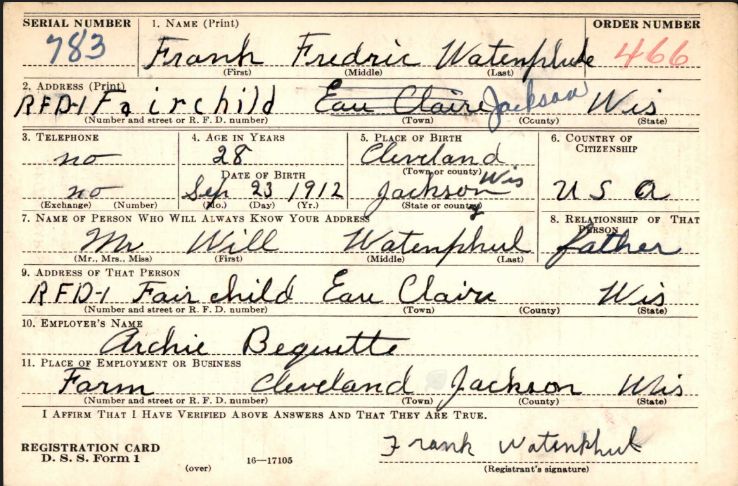 SERIAL NUMBER 1. NAME (Print) ORDER NUMBER
783 Frank Fredric Watenphule 466
(First) (Middle) (Last)
2. ADDRESS (Print)
RFD-1 Fairchild Eau Claire Jackson Wis
(Number and street or R. F. D. number) (Town) (County) (State)
3. TELEPHONE 4. AGE IN YEARS 5. PLACE OF BIRTH 6. COUNTRY OF CITIZENSHIP
no 28 Cleveland
DATE OF BIRTH (Town or county)
no Sep 23 1912 Jackson Wis U S A
(Exchange) (Number) (Mo.) (Day) (Yr.) (State or country)
7. NAME OF PERSON WHO WILL ALWAYS KNOW YOUR ADDRESS 8. RELATIONSHIP OF THAT PERSON
Mr Will Watenphul father
(Mr., Mrs., Miss) (First) (Middle) (Last)
9. ADDRESS OF THAT PERSON
RFD-1 Fairchild Eau Claire Wis
(Number and street or R. F. D. number) (Town) (County) (State)
10. EMPLOYER'S NAME
Archie Bequette
11. PLACE OF EMPLOYMENT OR BUSINESS
Farm Cleveland Jackson Wis
(Number and street or R. F. D. number) (Town) (County) (State)
I AFFIRM THAT I HAVE VERIFIED ABOVE ANSWERS AND THAT THEY ARE TRUE.
REGISTRATION CARD Frank Watenphul
D. S. S. Form 1 (over) 16—17105 (Registrant's signature)